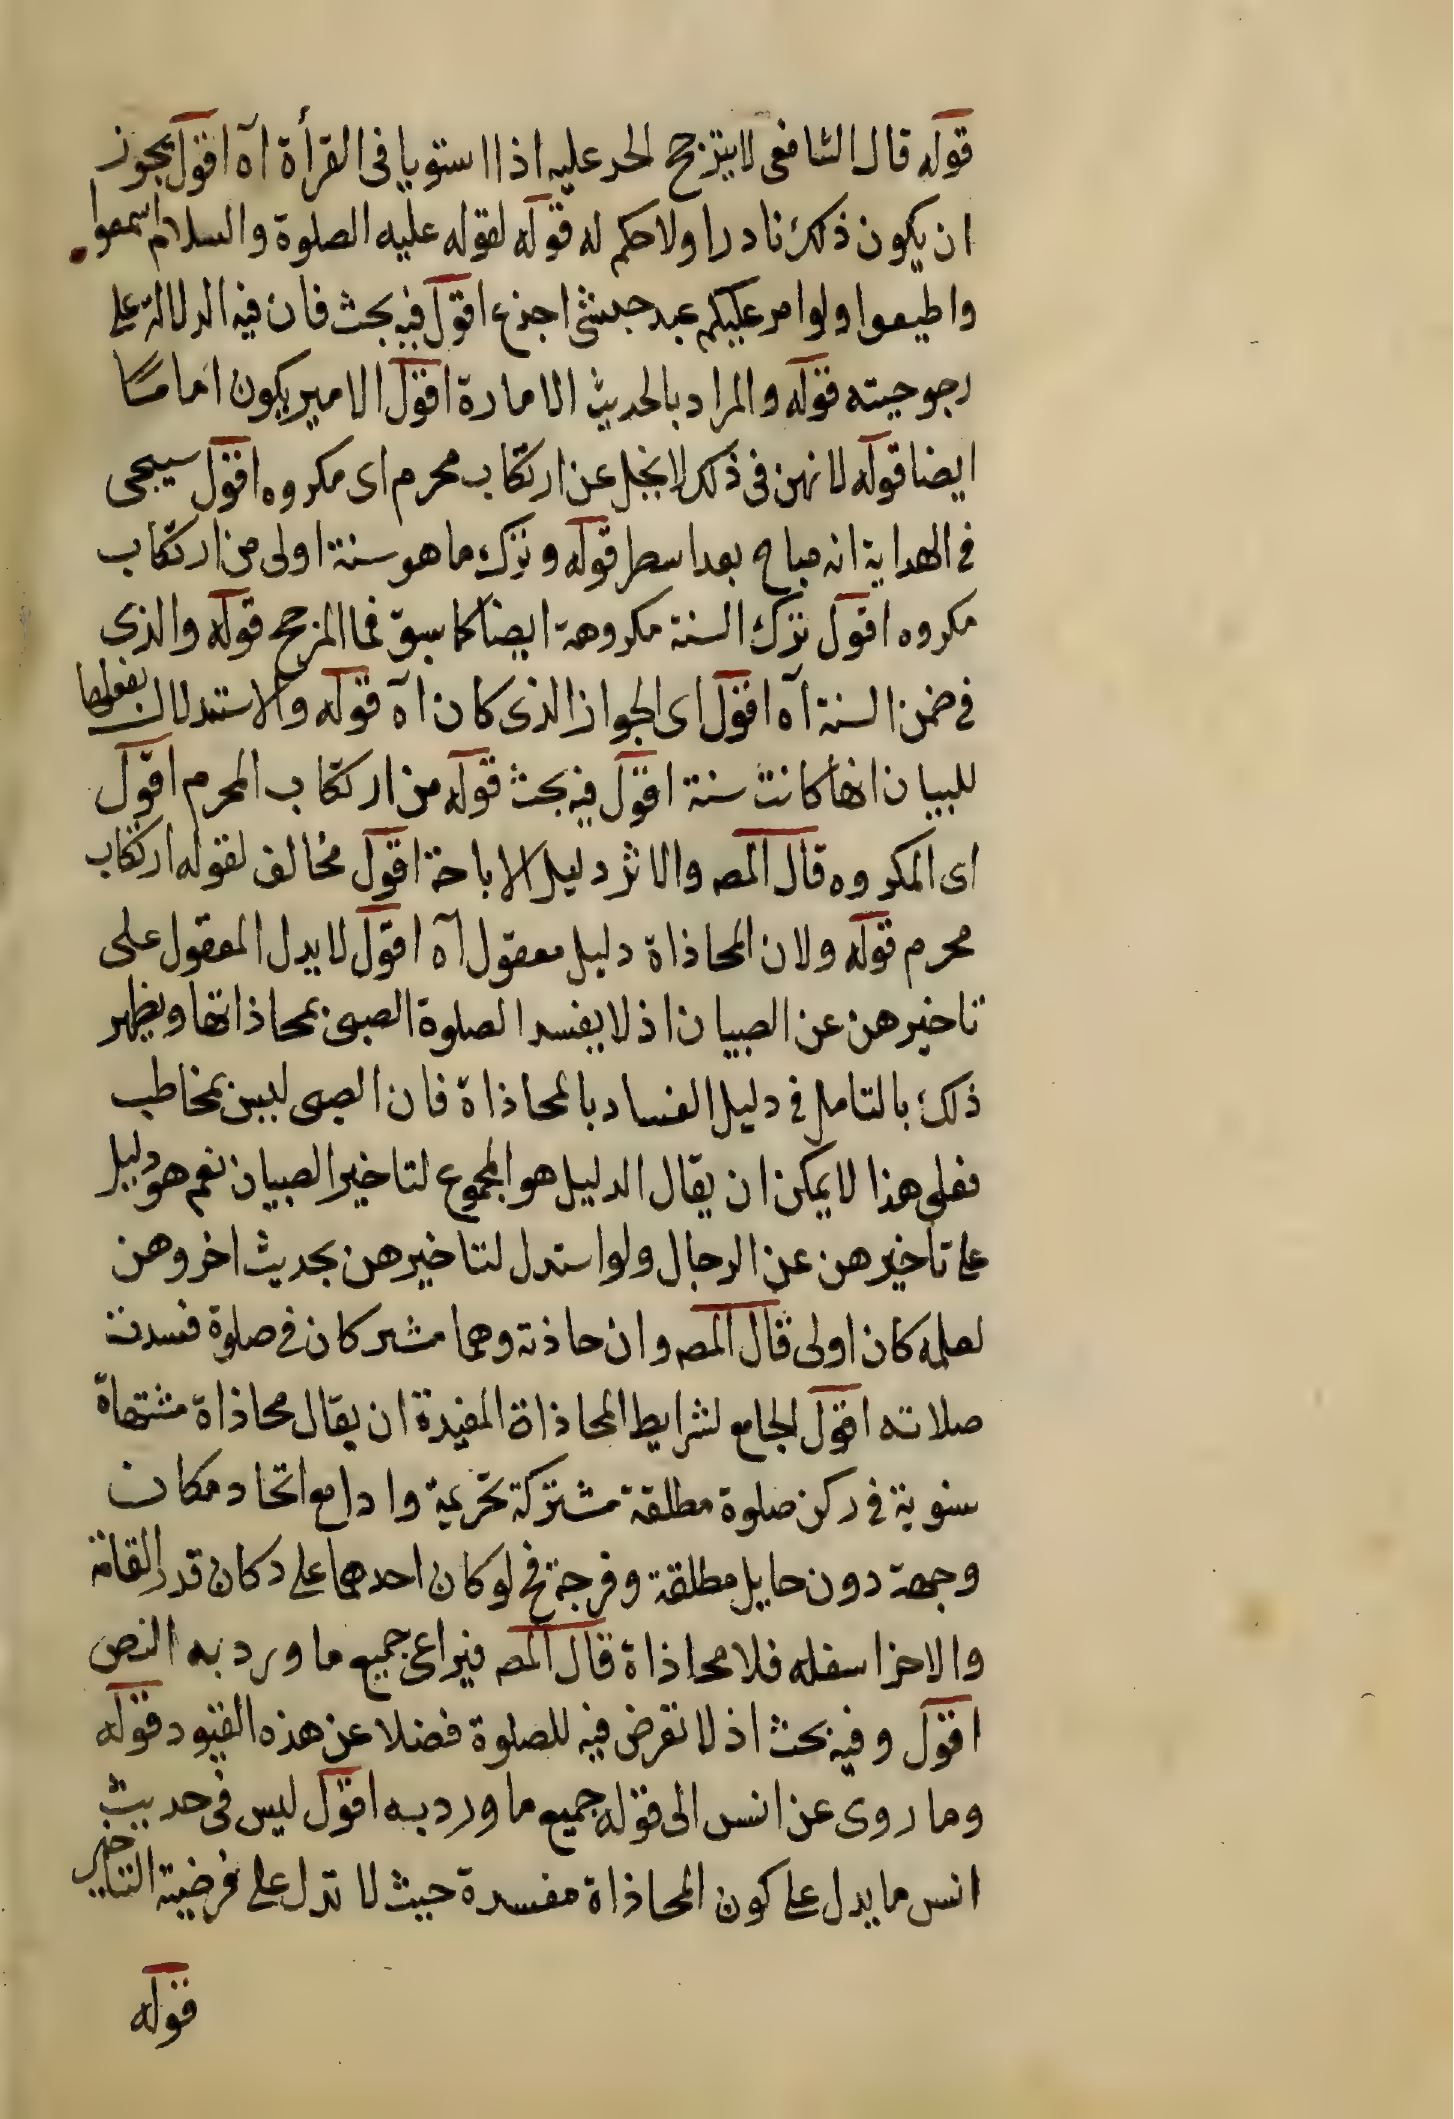 قوله قال الشافعى لا يترجح الحر عليه اذا استويا فى القرأة آه اقول يجوز
ان يكون ذلك نادرا ولا حكم له قوله لقوله عليه الصلوة والسلام اسمعوا
واطيعوا ولو امر عليكم عبد حبشى اجذع اقول فيه بحث فان فيه الدلالة على
رجوحيته قوله والمراد بالحديث الامارة اقول الامير يكون اماما
ايضا قوله لانهن فى ذلك لا يخل عن ارتكاب محرم اى مكروه اقول سيجى
فى الهداية انه مباح بعد اسطر قوله وترك ما هو سنة اولى من ارتكاب
مكروه اقول ترك السنة مكروهة ايضا كما سبق فما المرجح قوله والذى
فى ضمن السنة آه اقول اى الجواز الذى كان آه قوله والاستدلال بفعلها
للبيان انها كانت سنة اقول فيه بحث قوله من ارتكاب المحرم اقول
اى المكروه قال المصـ والاثر دليل الاباحة اقول مخالف لقوله ارتكاب
محرم قوله ولان المحاذاة دليل معقول آه اقول لا يدل المعقول على
تاخيرهن عن الصبيان اذ لا يفسد الصلوة الصبى بمحاذاتها ويظهر
ذلك بالتامل فى دليل الفساد بالمحاذاة فان الصبى ليس بمخاطب
فعلى هذا لا يمكن ان يقال الدليل هو المجموع لتاخير الصبيان نعم هو دليل
على تأخيرهن عن الرجال ولو استدل لتاخيرهن بحديث اخروهن
لعله كان اولى قال المصـ وان حاذته وهما مشتركان فى صلوة فسدت
صلاته اقول الجامع لشرايط المحاذاة المفيدة ان يقال محاذاة مشتهاة
منوية فى ركن صلوة مطلقة مشتركة تحريمة وادا مع اتحاد مكان
وجهة دون حايل مطلقة وفرجة فح لو كان احدهما على دكان قدر القامة
والاخر اسفله فلا محاذاة قال المصـ فيراعى جميع ما ورد به النص
اقول وفيه بحث اذ لا تعرض فيه للصلوة فضلا عن هذه القيود قوله
وما روى عن انس الى قوله جميع ما ورد به اقول ليس فى حديث
انس ما يدل على كون المحاذاة مفسدة حيث لا تدل على فرضية التاخير
قوله